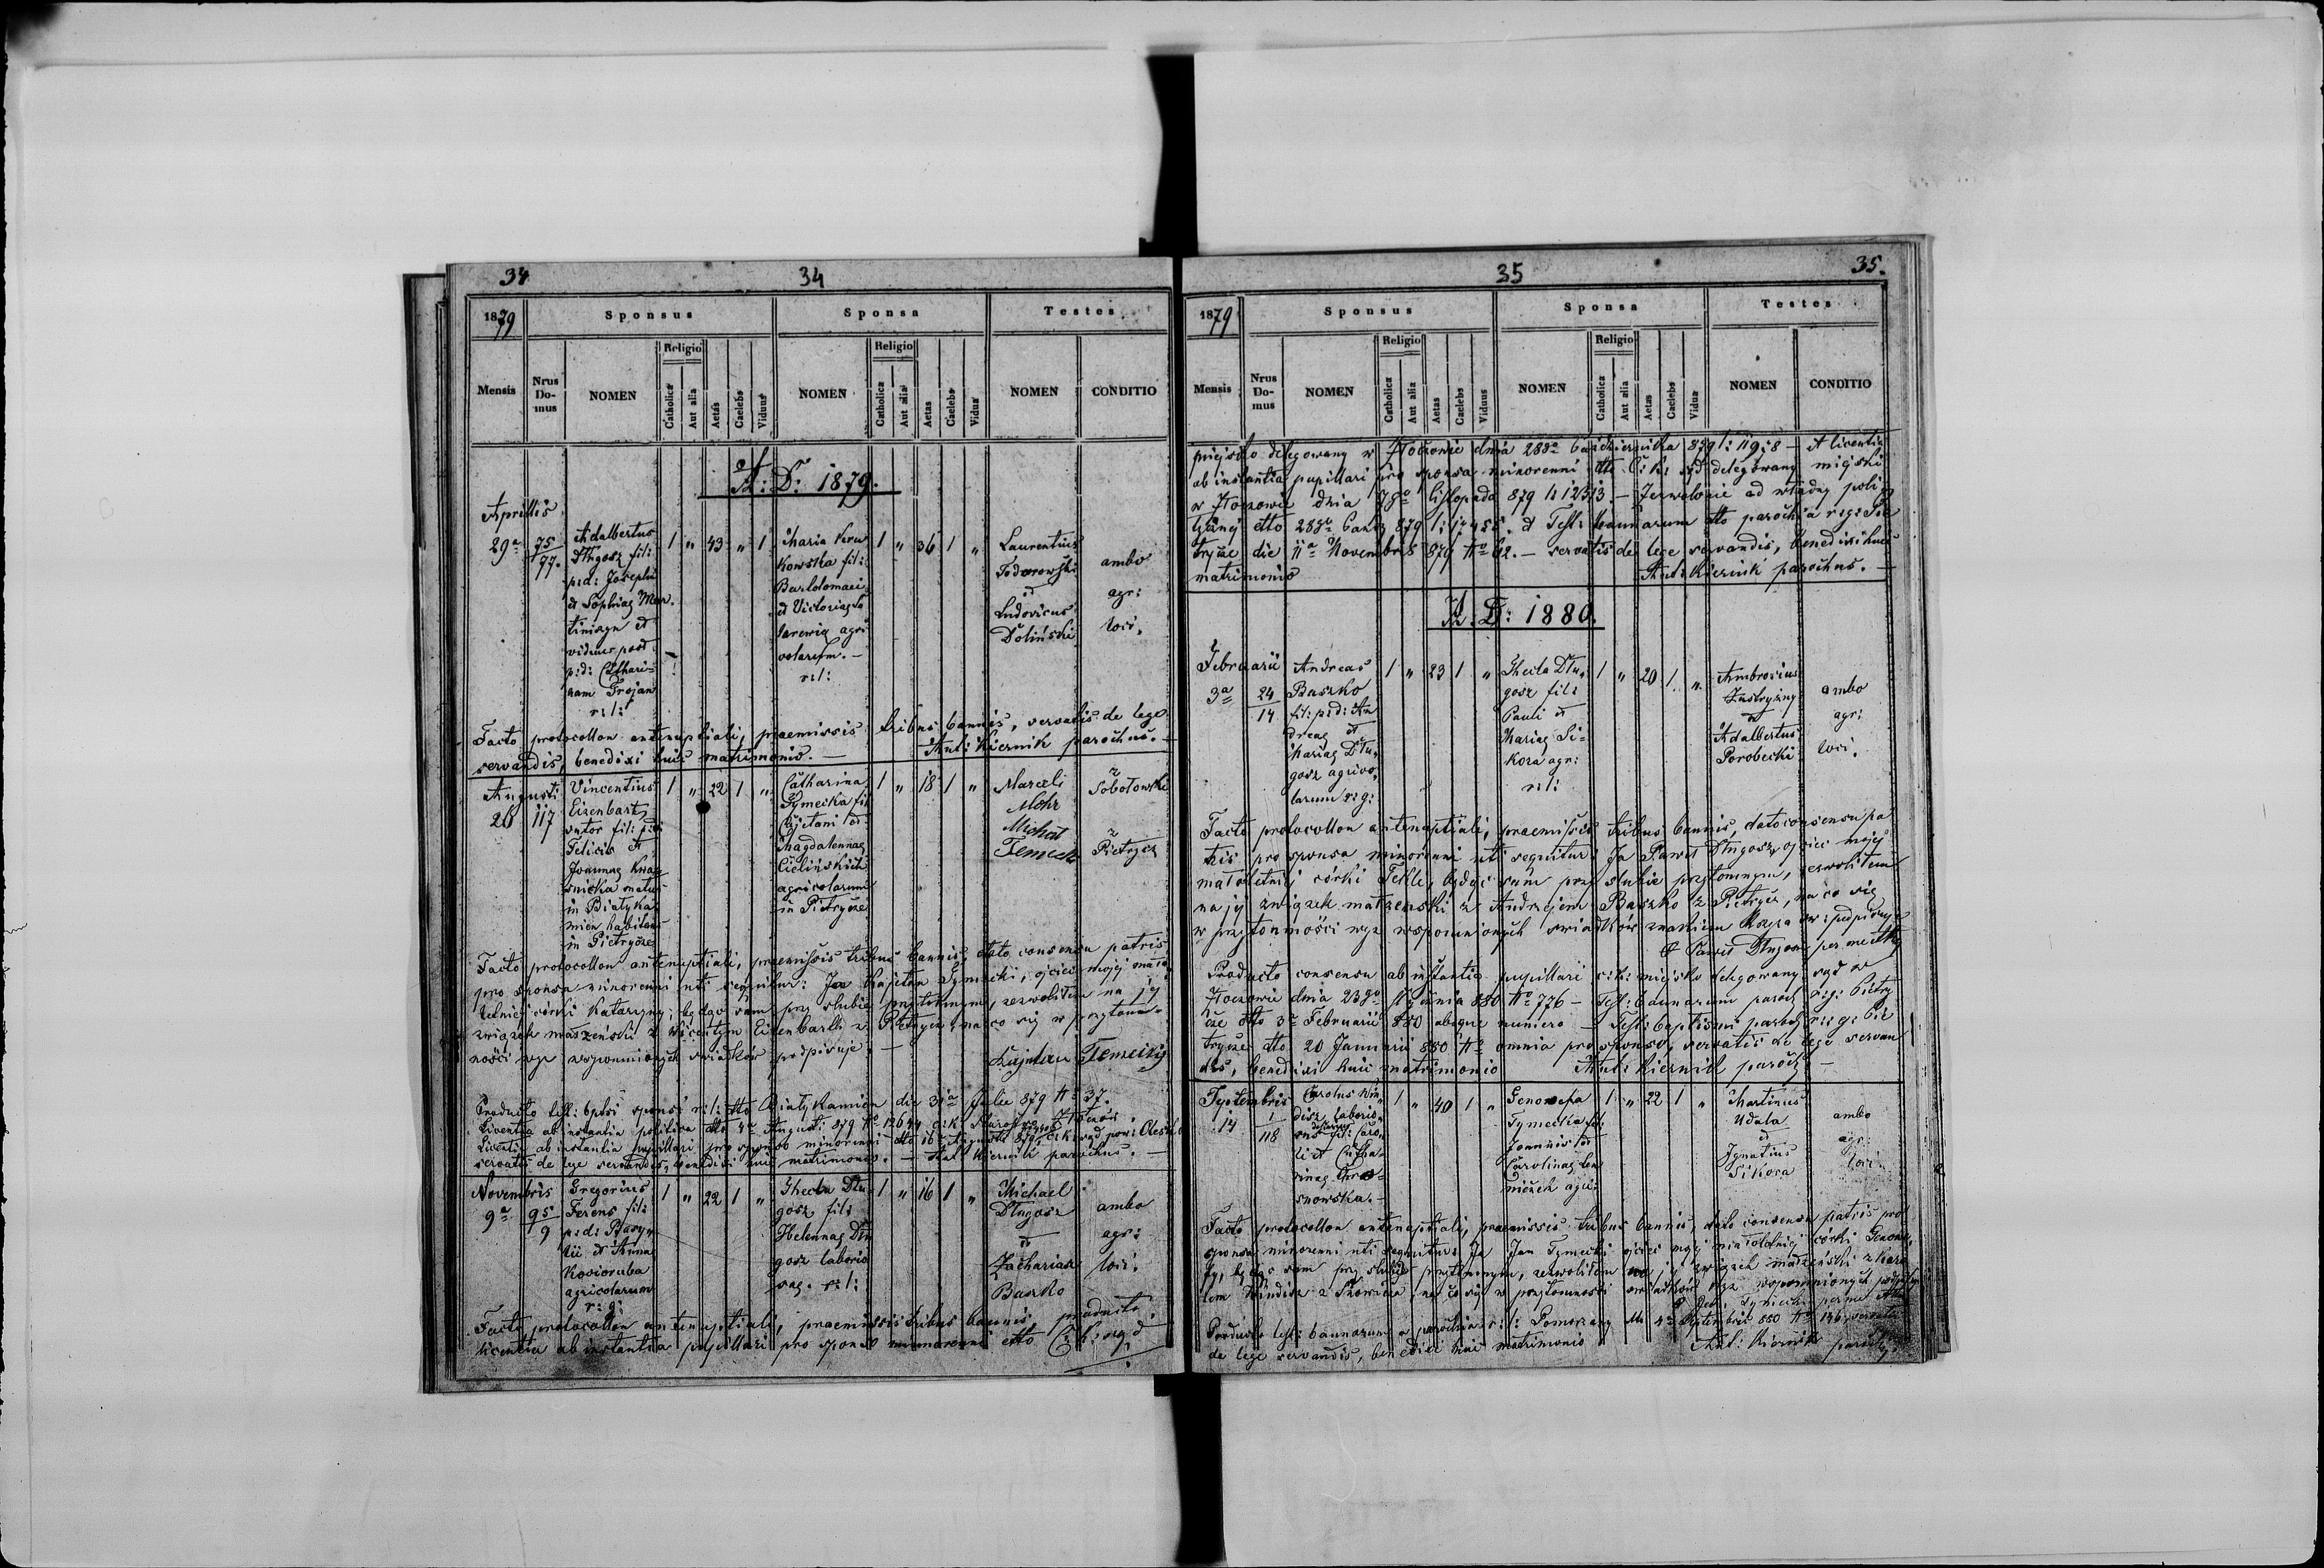 34
34
1879
Sponsus
Sponsa
Testes
Mensis
Nrus Domus
NOMEN
Religio
Catholica
Aut alia
Aetas
Caelebs
Viduus
NOMEN
Religio
Catholica
Aut alia
Aetas
Caelebs
Vidua
NOMEN
CONDITIO
A: D: 1879.
Aprilis
29a
75
77.
Adalbertus
Długosz fil:
p:d: Josephi
et Sophiae Mar
tiniszyn et
viduus post
p:d: Cathari=
nam Trojan
r: l:
1 " 43 " 1
Maria
kowska fil:
Bartolomaei
et Victoriae
agri
colarum. —
r: l:
1 " 36 1 "
Laurentius
Todorowski
et
Ludovicus
Doliński
ambo
agr:
loci.
Facto protocollon antenuptiali, praemissis tribus bannis, servatis de lege
servandis, benedixi huic matrimonio. — Ant: Kiernik parochus. —
Augusti
26
117
Vincentius
Eizenbart
sutor fil: p:d:
Felicis et
Joannae
natus
in Białyka
mień habitans
in Pietrycze
1 " 22 1 "
Catharina
Tymecka fil
Cajetani et
Magdalennae
agricolarum
in Pietrycze
1 " 18 1 "
Marceli
Mohr
Michał
z
Sobotowski
z
Pietrycz
Facto protocollon antenuptiali, praemissis tribus bannis, dato consensu patris
pro sponsa minorenni uti sequitur: Ja Kajetan Tymecki, ojciec mojej mało
letniej córki Katarzyny, będąc sam przy ślubie przytomnym, zezwoliłem na jej
związek małżeński z Wicentym Eizenbarth z Pietrycz, na co się w przytom=
ności wyż wspomnionych świadków podpisuje. —
Kajetan
Producto test: bptsi sponsi r: l: dtto Białykamień die 31a Julii 879 No 37.
Licentia ab instantia politica dtto 4a Augusti 879 No
Licentia ab instantia pupillari pro sponso minorenni dtto 16 Augusti 879
servatis de lege servandis, benedixi huic matrimonio. — Ant Kiernik parochus. —
Novembris
9a
95
9
Gregorius
Ferens fil:
p:d: Basy
lii et Anna
Kosioruba
agricolarum
r: g:
1 " 22 1 "
Thecla Dłu
gosz fil:
Helennae Dłu
gosz laborio
sae. r: l:
1 " 16 1 "
Michael
Długosz
et
Zacharias
Baszko
ambo
agr:
loci.
Facto protocollon antenuptiali, praemissis tribus bannis, producta
licentia ab instantia pupillari pro sponso minorenni dtto C: k: sąd
35
35.
1879
Sponsus
Sponsa
Testes
Mensis
Nrus Domus
NOMEN
Religio
Catholica
Aut alia
Aetas
Caelebs
Viduus
NOMEN
Religio
Catholica
Aut alia
Aetas
Caelebs
Vidua
NOMEN
CONDITIO
miejsko delegowany w Złoczowie dnia 28go Października 879 l: — et licentia
ab instantia pupillari pro sponsa minorenni dtto C: k: sąd delegowany miejski
w Złoczowie dnia 7go listopada 879 l: 12313. — Zezwolenie od władzy poli
tycznej dtto 28go Paźdz 879 et Test: bannarum dtto parochia r: g: Pie
trycze die 11a Novembris 879 No 62. — servatis de lege servandis, benedixi huic
matrimonio Ant: Kiernik parochus. —
A: D: 1880.
Februarii
3a
24
14
Andreas
Baszko
fil: p:d: An
dreae et
Mariae Dłu
gosz agrico
larum r: g:
1 " 23 1 "
Thecla Dłu
gosz fil:
Pauli et
Mariae Si=
kora agr:
r: l:
1 " 20 1 "
Ambrosius
et
Adalbertus
Porobecki
ambo
agr:
loci.
Facto protocollon antenuptiali, praemissis tribus bannis, dato consensu pa
tris pro sponsa minorenni uti sequitur: Ja Paweł Długosz ojciec mojej
małoletniej córki Tekle, będąc sam przy ślubie przytomnym, zezwoliłem
na jej związek małżenski z Andrzejem Baszko z Pietrycz, na co się
w przytomności wyż wspomnionych świadków znakiem krzyża św: podpisuję
+ Paweł Długosz per me
Producto consensu ab instantia pupillari c: k: miejsko delegowany sąd w
Złoczowie dnia 23go Stycznia 880 No 776 — Test: bannarum paroch r: g: Pietry
cze dtto 3a Februarii 880 absque numero — Test: baptismi paroch r: g: Pie
trycze dtto 20 Januarii 880 No omnia pro sponso, servatis de lege servan
dis, benedixi huic matrimonio Ant: Kiernik paroch —
Septembris
14
1
118
Carolus Win
disz laborio
sus fil: Caro
li et Catha
rinae
1 " 40 1 "
Genowefa
Tymecka fil:
Joannis et
Carolinae
agr:
1 " 22 1 "
Martinus
Udala
et
Ignatius
Sikora
ambo
agr:
loci.
Facto protocollon antenuptiali, praemissis tribus bannis, dato consensu patris pro
sponsa minorenni uti sequitur: Ja Jan Tymecki ojciec mojej małoletniej córki Genowe
fy, będąc sam przy ślubie przytomnym, zezwoliłem na jej związek małżeński z Karo
lem Windisz z na co się w przytomności świadków wyż wspomnionych podpisuję
+ Jan Tymecki per me
Producto test: bannorum a parochia r: l: Pomorzany dtto 4a Septembris 880 No servatis
de lege servandis, benedixi huic matrimonio Ant: Kiernik paroch.